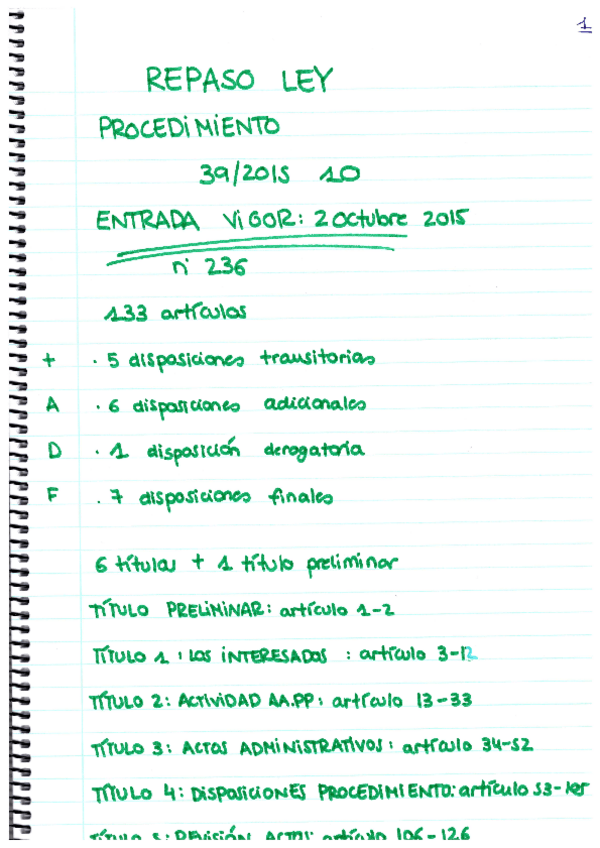 1
REPASO LEY
PROCEDIMIENTO
39/2015 10
ENTRADA VIGOR: 2 Octubre 2015
nº 236
133 artículos
+ · 5 disposiciones transitorias
A · 6 disposiciones adicionales
D · 1 disposición derogatoria
F · 7 disposiciones finales
6 títulos + 1 título preliminar
TÍTULO PRELIMINAR: artículo 1-2
TÍTULO 1: LOS INTERESADOS : artículo 3-12
TÍTULO 2: ACTIVIDAD AA.PP: artículo 13-33
TÍTULO 3: ACTOS ADMINISTRATIVOS: artículo 34-52
TÍTULO 4: DISPOSICIONES PROCEDIMIENTO: artículo 53-105
TÍTULO 5: REVISIÓN ACTOS: artículo 106-126